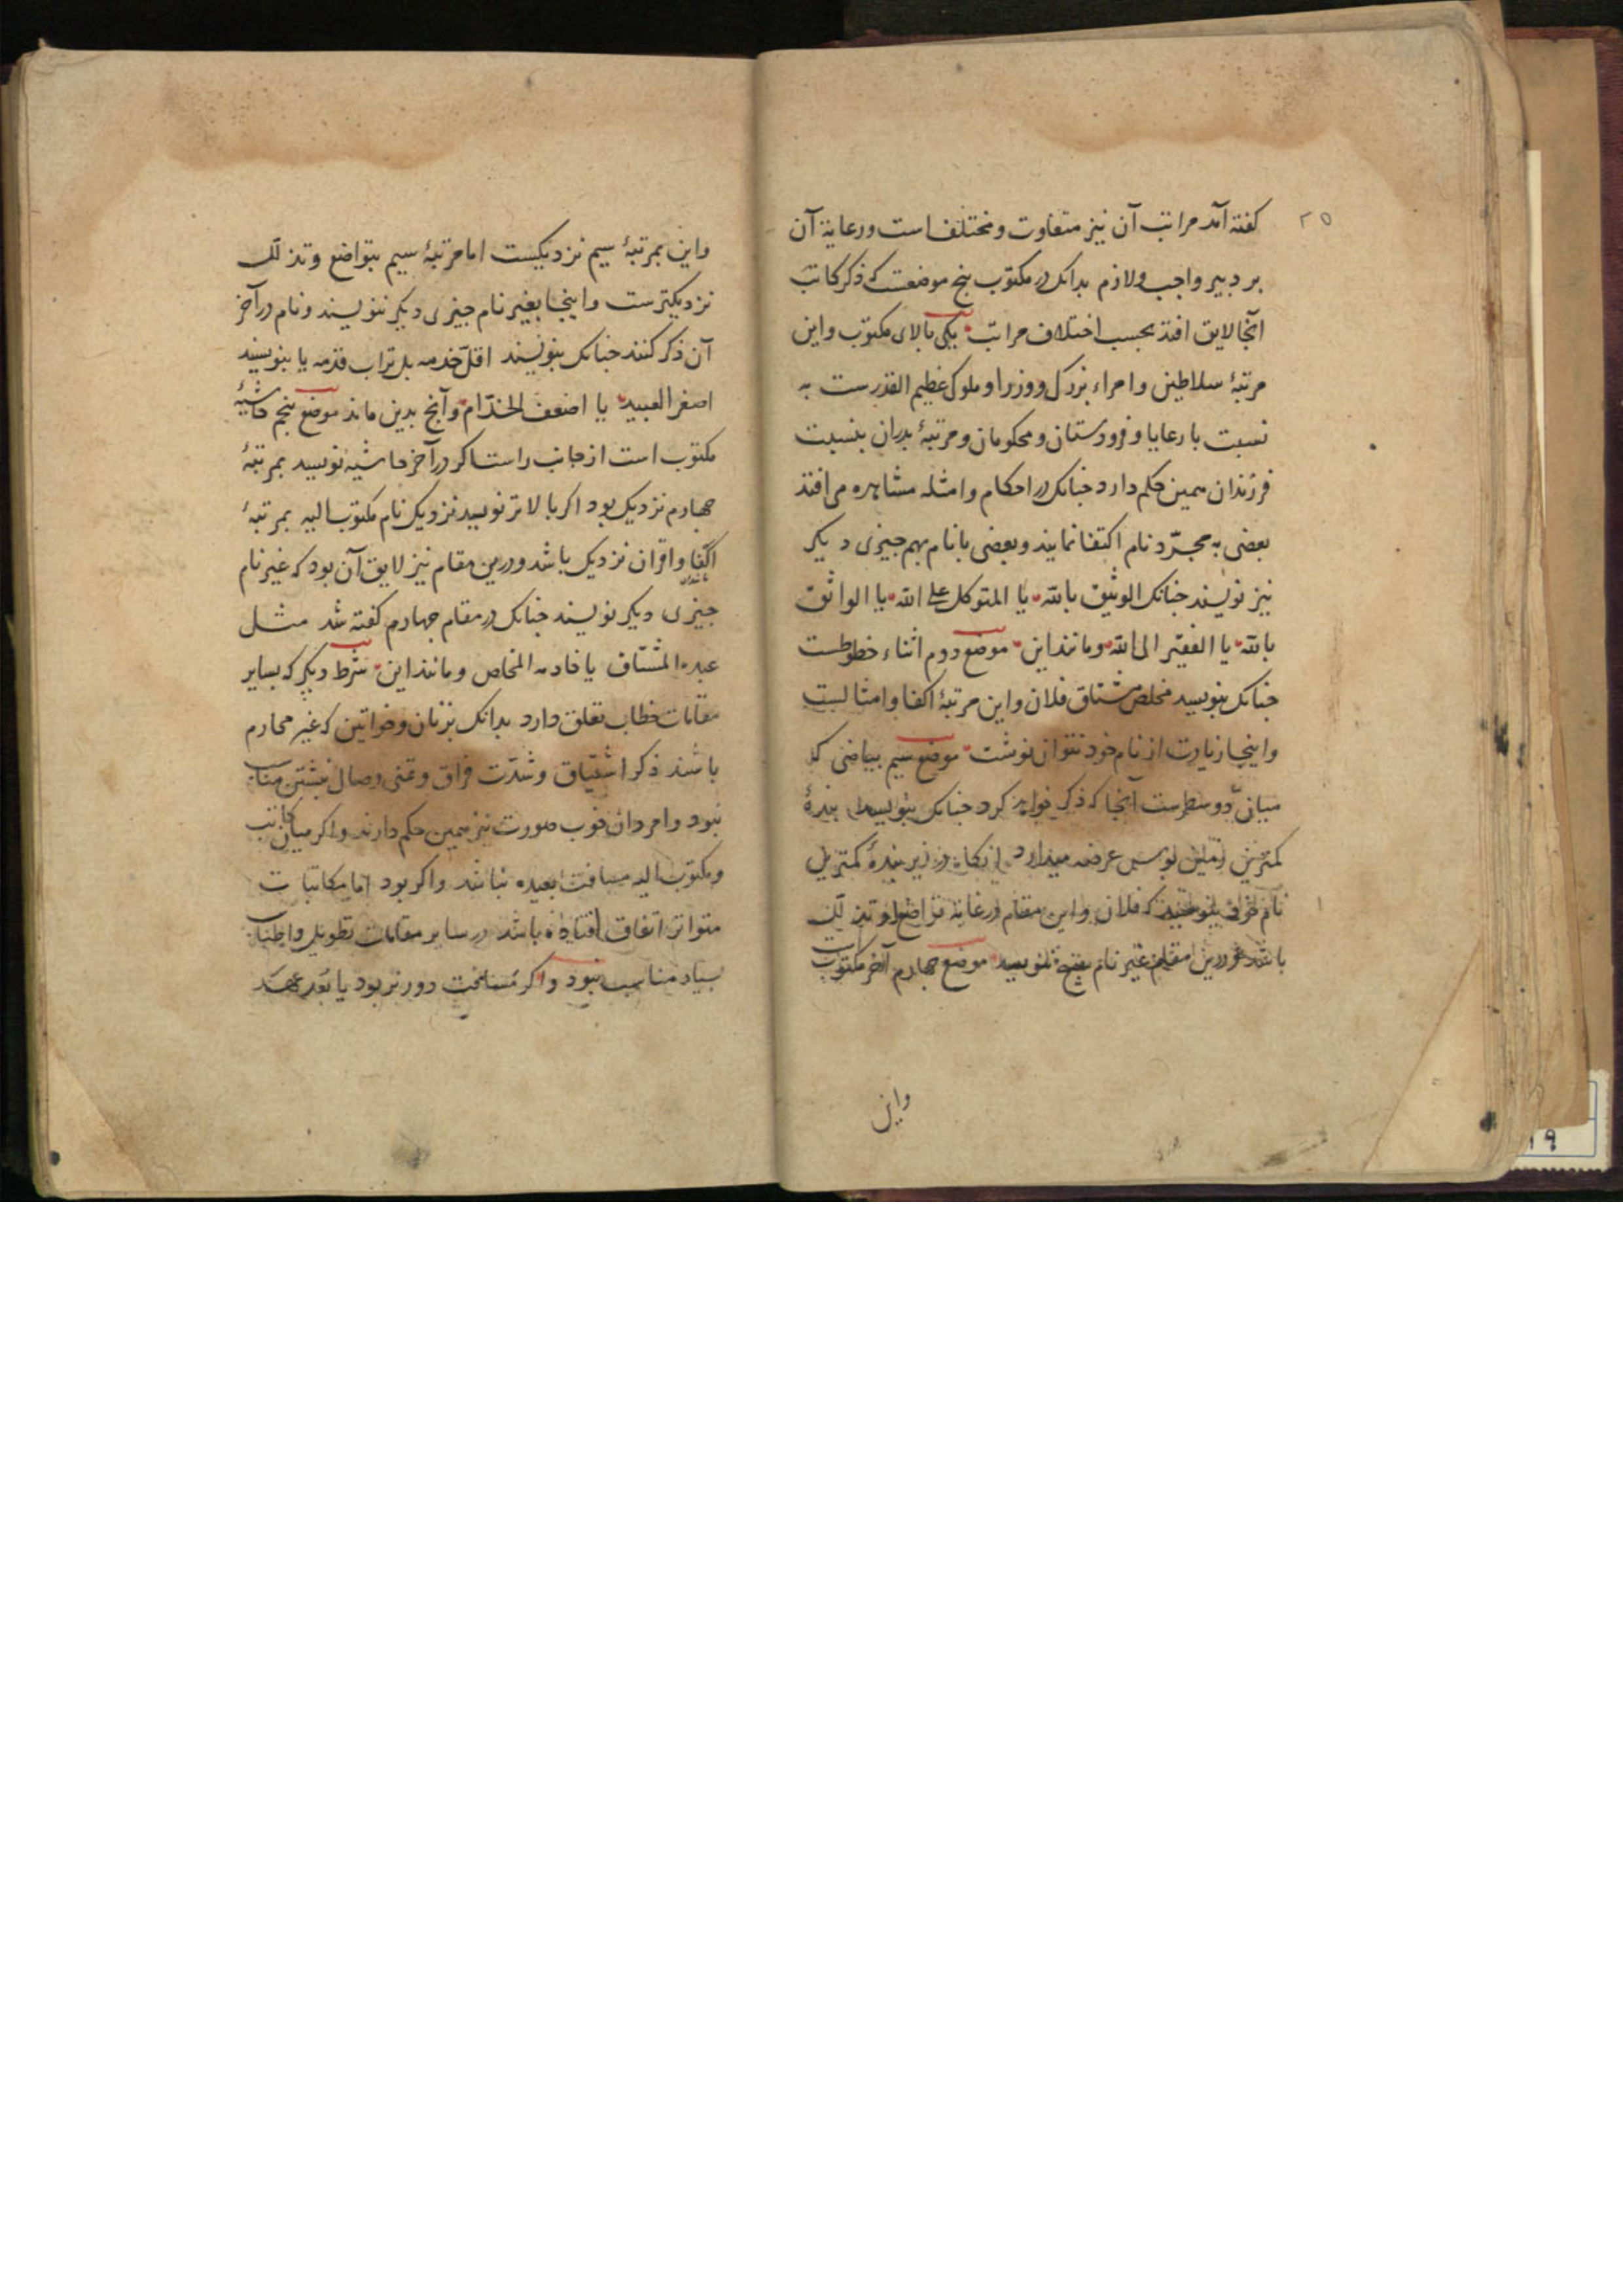 ٢٥
کفته آمد مراتب آن نیز متفاوت و مختلف است و رعایة آن
بر دبیر واجب و لازم بدانک در مکتوب پنج موضعست که ذکر کاتب
آنجا لایق افتد بحسب اختلاف مراتب یکی بالای مکتوب و این
مرتبهٔ سلاطین و امراء بزرک و وزرا و ملوک عظیم القدرست به
نسبت با رعایا و فرودستان و محکومان و مرتبهٔ بدران بنسبت
فرزندان همین حکم دارد جنانک در احکام و امثله مشاهده می افتد
بعضی به مجرّد نام اکتفا نمایند و بعضی با نام بهم جیزی دیکر
نیز نویسند جنانک الوثیق بالله یا المتوکل علی الله یا الواثق
بالله یا الفقیر الی الله و مانند این موضع دوم اثناء خطوطست
جنانک بنویسد مخلص مشتاق فلان و این مرتبهٔ اکفا و امثالست
و اینجا زیادت از نام خود نتوان نوشت موضع سیم بیاضی که
میان دو سطرست آنجا که ذکر خواهد کرد جنانک بنویسد بندهٔ
کمترین زمین بوس عرضه میدارد زیر بندهٔ کمترین
نام خود بنویسد که فلان و این مقام در غایة تواضع و تذلّل
باشد و درین مقام غیر نام هیچ ننویسد موضع جهارم آخر مکتوبات
واین
و این بمرتبهٔ سیم نزدیکست اما مرتبهٔ سیم بتواضع و تذلّل
نزدیکترست و اینجا بغیر نام جیزی دیکر ننویسند و نام در آخر
آن ذکر کنند جنانک بنویسند اقلّ خدمه بل تراب قدمه یا بنویسند
اصغر العبید یا اضعف الخدّام و آنج بدین ماند موضع پنجم حاشیهٔ
مکتوب است از جانب راست اکر در آخر حاشیه نویسد بمرتبهٔ
جهارم نزدیک بود اکر بالاتر نویسد نزدیک نام مکتوب الیه بمرتبهٔ
اکفا و اقران نزدیک باشد و درین مقام نیز لایق آن بود که غیر نام
جیزی دیکر نویسند جنانک در مقام جهارم کفته شد مثل
عبده المشتاق یا خادمه المخلص و مانند این شرط دیکر که بسایر
مقامات خطاب تعلق دارد بدانک بزنان و خواتین که غیر محارم
باشند ذکر اشتیاق و شدّت فراق و تمنی وصال نبشتن مناسب
نبود و امردان خوب صورت نیز همین حکم دارند و اکر میان کاتب
و مکتوب الیه مسافت بعیده نباشد و اکر بود اما مکاتبات
متواتر اتفاق افتاده باشد در سایر مقامات تطویل و اطناب
بسیار مناسب نبود و اکر مسافت دورتر بود یا بعد عهد